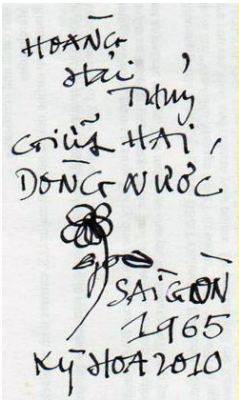 HOÀNG
HẢI
THỦY
GIỮA HAI
DÒNG NƯỚC
SAIGÒN
1965
KỲ HOA 2010